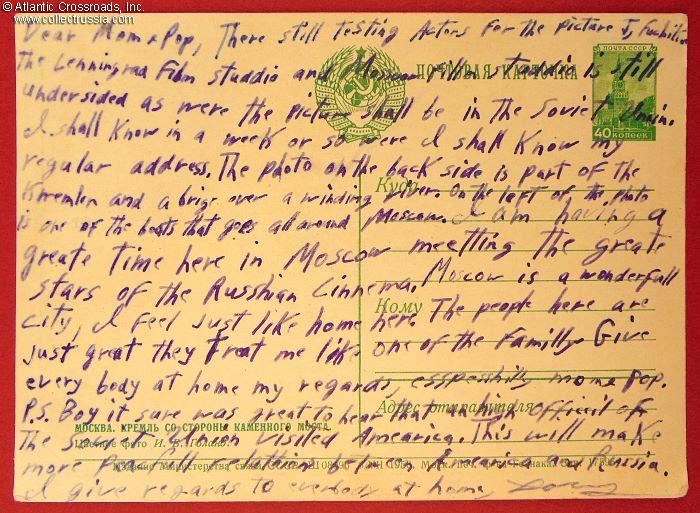 © Atlantic Crossroads, Inc.
www.collectrussia.com
Dear Mom & Pop, There still testing Actors for the Picture I,
The Lenningrad Film studdio and Moscow Film studdio is still
undersided as were the picture shall be in the Soviet Union.
I shall know in a week or so were I shall know my
regular address. The photo on the back side is part of the
Kremlen and a brige over a winding river. On the left of the photo
is one of the boats that goes all around Moscow. I am having a
greate time here in Moscow meetting the greate
stars of the Russhian Cinnema. Moscow is a wonderfull
city, I feel just like home here The people here are
just great they treat me like one of the familly. Give
every body at home my regards, esspesshilly mom & Pop.
P.S. Boy it sure was great to hear that a high official of
the Soviet Union visited Amearica. This will make
more between America and Russia.
I give regards to everbody at home,
ПОЧТОВАЯ КАРТОЧКА
ПОЧТА СССР
40 КОПЕЕК
Куда
Кому
Адрес отправителя
МОСКВА. КРЕМЛЬ СО СТОРОНЫ КАМЕННОГО МОСТА.
Цветное фото И. Б. Голанд
Издание Министерства связи СССР